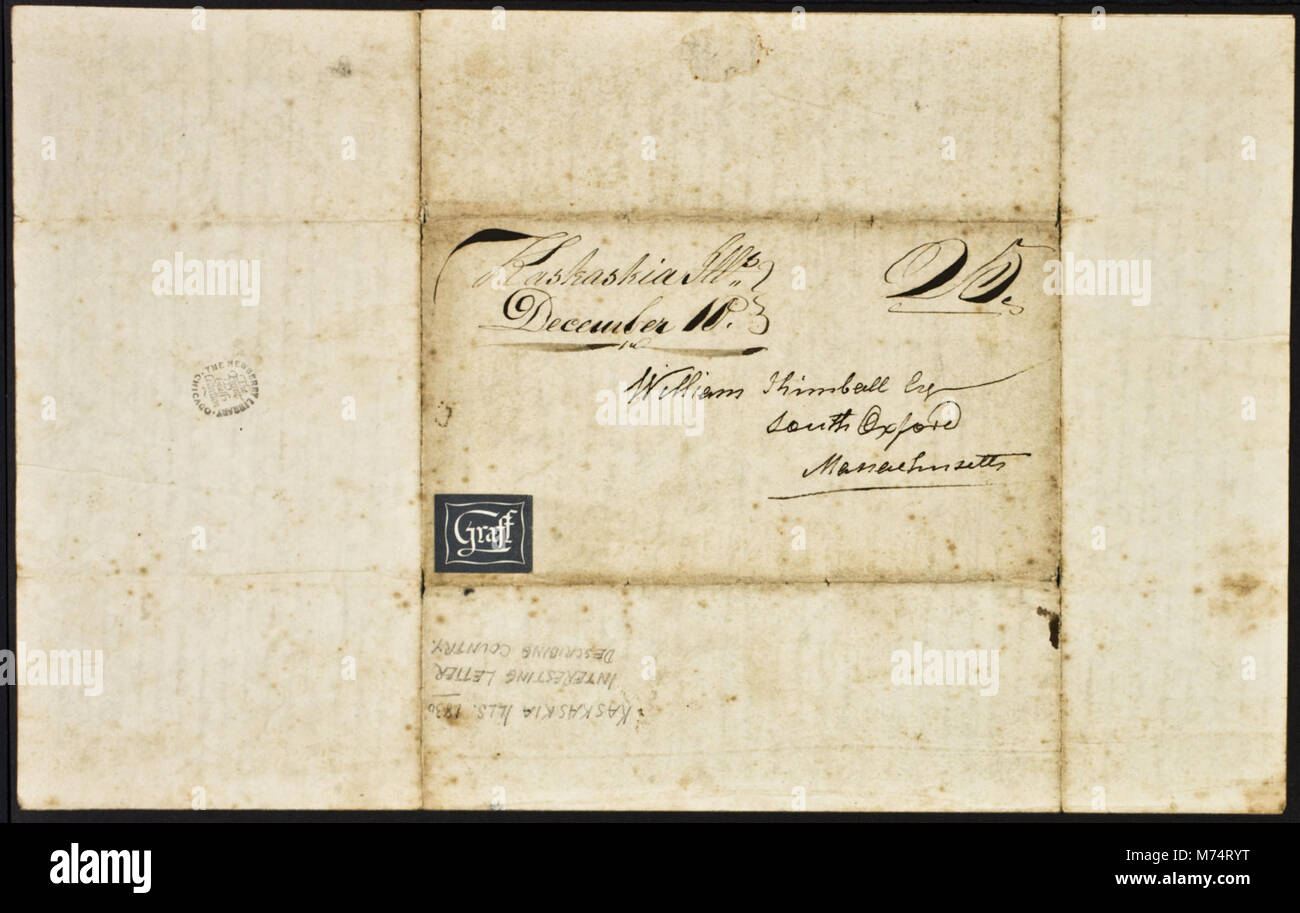 Kaskaskia Ills
December 10.
25.
William Kimball Esq
South Oxford
Massachusetts
THE NEWBERRY LIBRARY · CHICAGO ·
Graff
KASKASKIA ILLS. 1830
INTERESTING LETTER
DESCRIBING COUNTRY.
a alamy stock photo
alamy
M74RYT
www.alamy.com